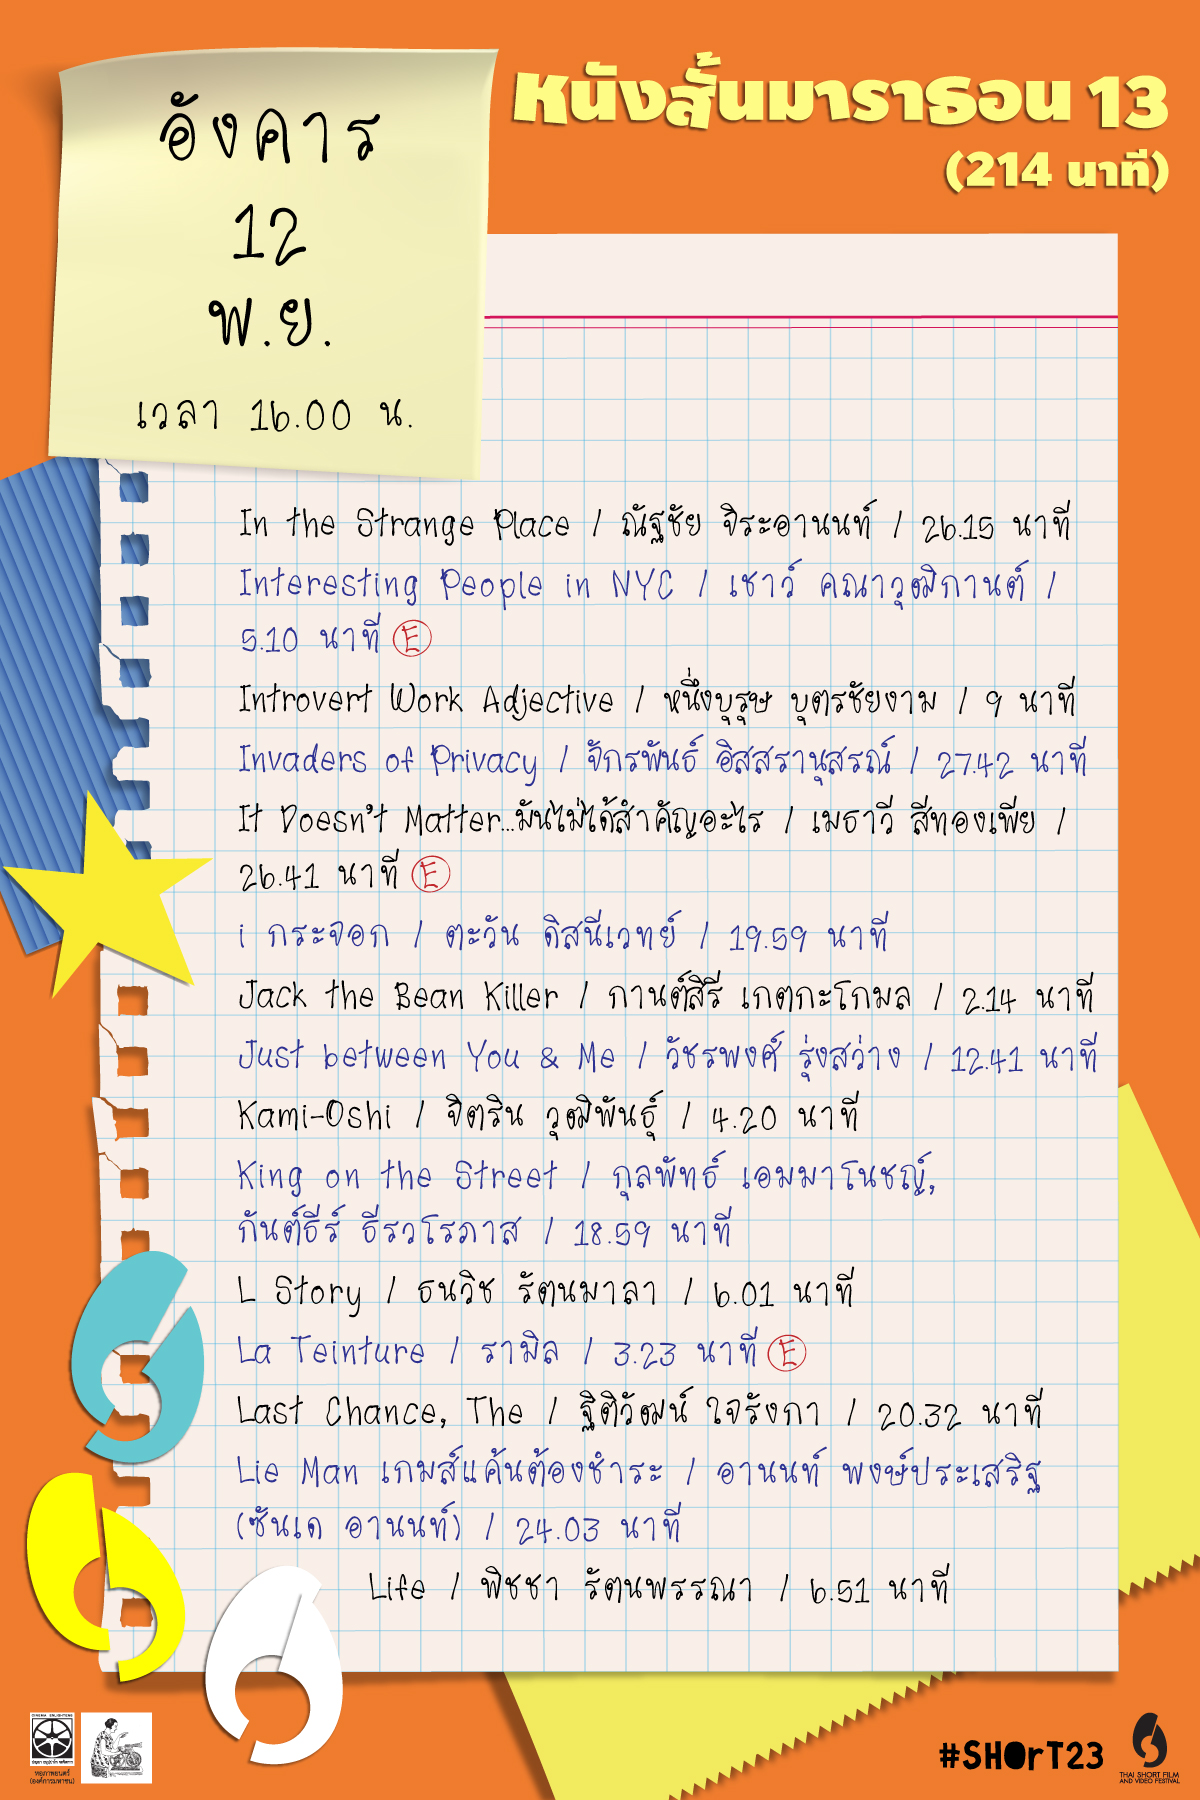 หนังสั้นมาราธอน 13
(214 นาที)
อังคาร
12
พ.ย.
เวลา 16.00 น.
In the Strange Place / ณัฐชัย จิระอานนท์ / 26.15 นาที
Interesting People in NYC / เชาว์ คณาวุฒิกานต์ /
5.10 นาที E
Introvert Work Adjective / หนึ่งบุรุษ บุตรชัยงาม / 9 นาที
Invaders of Privacy / จักรพันธ์ อิสสรานุสรณ์ / 27.42 นาที
It Doesn't Matter...มันไม่ได้สำคัญอะไร / เมธาวี สีทองเพีย /
26.41 นาที E
i กระจอก / ตะวัน ดิสนีเวทย์ / 19.59 นาที
Jack the Bean Killer / กานต์สิรี เกตกะโกมล / 2.14 นาที
Just between You & Me / วัชรพงศ์ รุ่งสว่าง / 12.41 นาที
Kami-Oshi / จิตริน วุฒิพันธุ์ / 4.20 นาที
King on the Street / กุลพัทธ์ เอมมาโนชญ์,
กันต์ธีร์ ธีรวโรภาส / 18.59 นาที
L Story / ธนวิช รัตนมาลา / 6.01 นาที
La Teinture / รามิล / 3.23 นาที E
Last Chance, The / ฐิติวัฒน์ ใจรังกา / 20.32 นาที
Lie Man เกมส์แค้นต้องชำระ / อานนท์ พงษ์ประเสริฐ
(ซันเด อานนท์) / 24.03 นาที
Life / พิชชา รัตนพรรณา / 6.51 นาที
หอภาพยนตร์
(องค์การมหาชน)
#SHOrT23
THAI SHORT FILM
AND VIDEO FESTIVAL